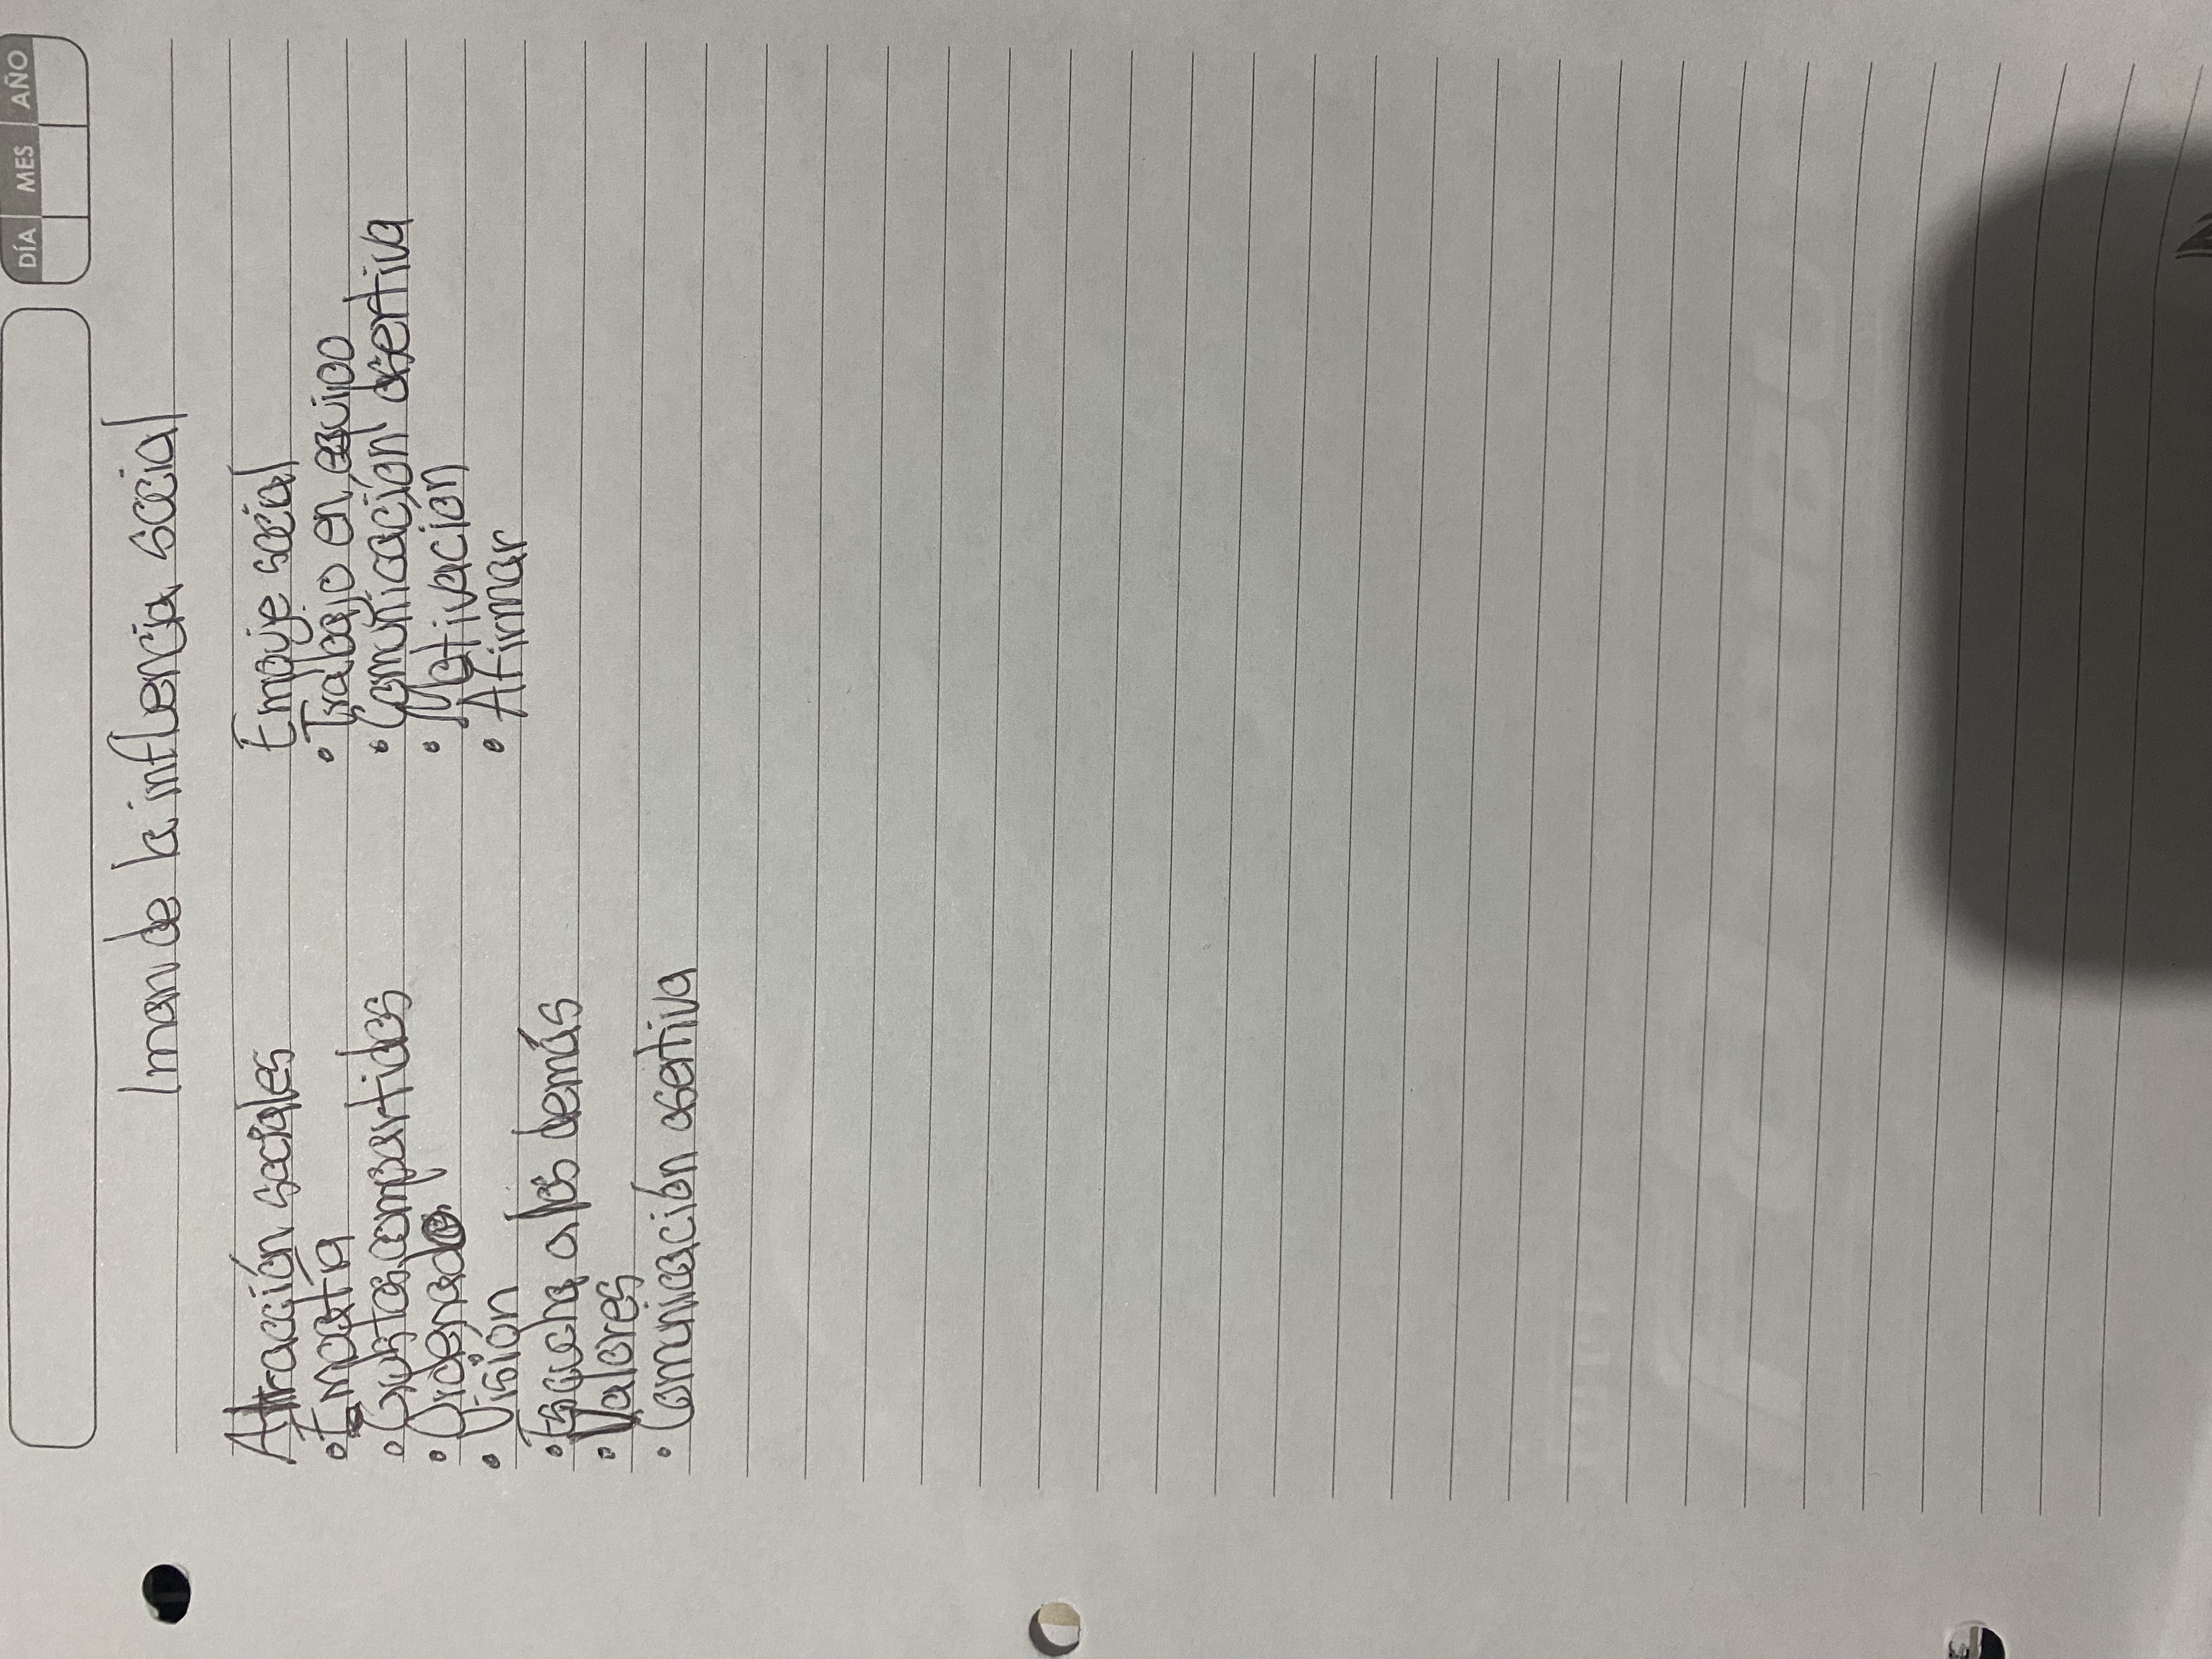 DÍA MES AÑO
Iman de la influencia social
Atracción sociales
• Empatía
• Gustos compartidos
• Ordenado
• Visión
• Escucha a los demás
• Valores
• Comunicación asertiva
Empuje social
• Trabajo en equipo
• Comunicación asertiva
• Motivacion
• Afirmar